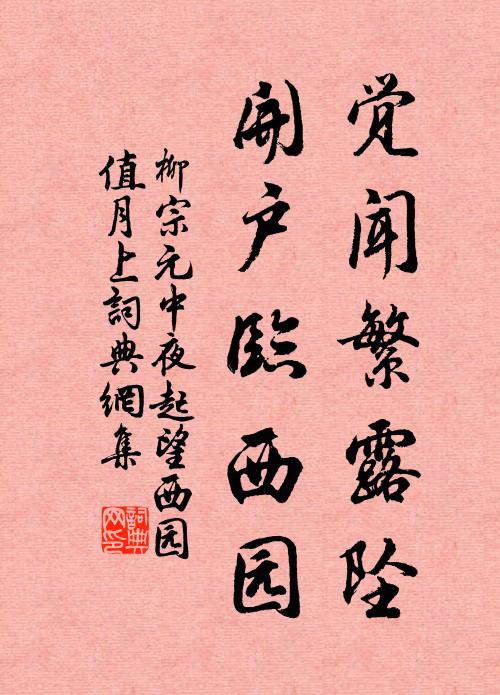 觉闻繁露坠
開户臨西园
柳宗元中夜起望西园
值月上詞典網集
詞典网印